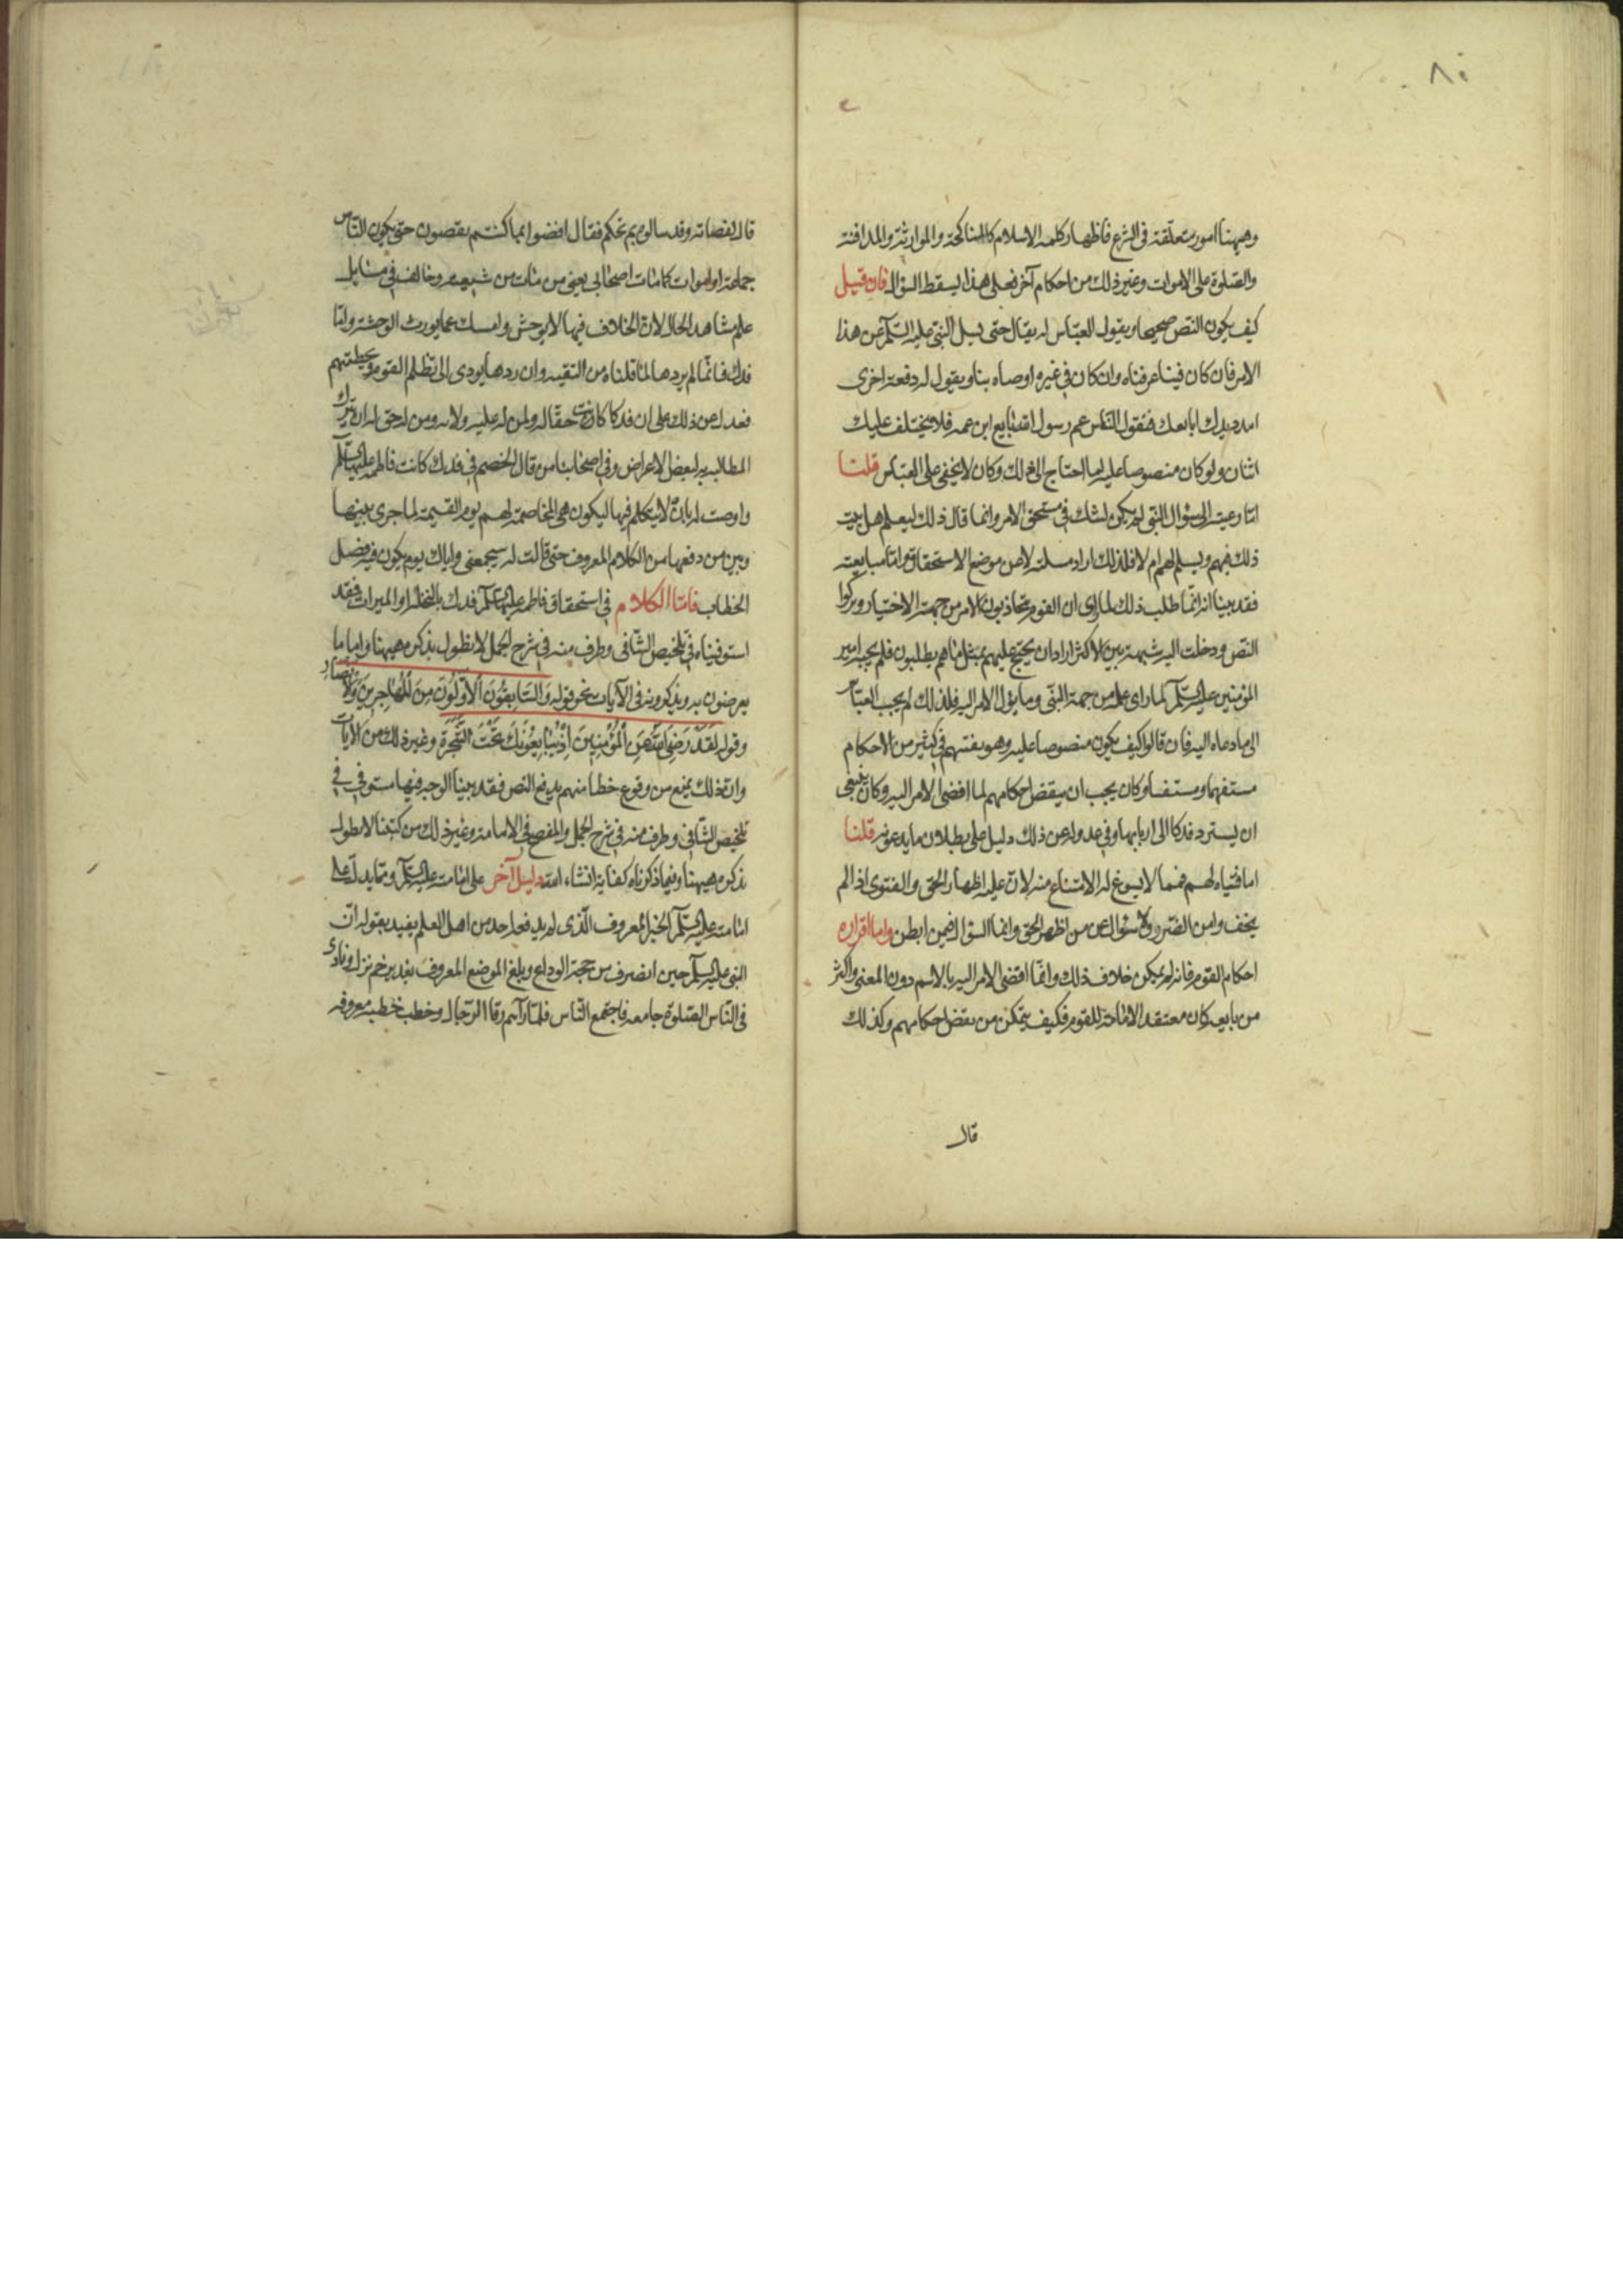 ٨٠
وهيهنا امور متعلقة فى الشرع فاظهار كلمه الاسلام كالمناكحة والموارثة والمدافنة
والصلوة على الاموات وغير ذلك من احكام آخر فعلى هذا يسقط السؤال فان قيل
كيف يكون النص صحيحا ويقول العباس له يقال حتى نسل النبى عليه السلم عن هذا
الامر فان كان فينا عرفناه وان كان فى غيره اوصاه بنا ويقول له دفعة اخرى
امدد يدك ابايعك فيقول الناس عم رسول الله بايع ابن عمه فلا يختلف عليك
اثنان ولو كان منصوصا عليه لما احتاج الى ذلك وكان لا يخفى على العباس قلنا
اما رعيته الى سؤال النبى لم يكن لشك فى مستحق الامر وانما قال ذلك ليعلم هل يثبت
ذلك فيهم ويسلم لهم ام لا فلذلك اراد مسلته لا عن موضع الاستحقاق واما مبايعته
فقد بينا انه انما طلب ذلك لما راى ان القوم تجاذبون الامر من جهة الاختيار وتركوا
النص ودخلت اليه شبهة بين الاكثر اراد ان يحتج عليهم بمثل ما هم يطلبون فلم يجب امير
المؤمنين عليه السلم لما راى علمه من جهة النبى وما يؤل الامر اليه فلذلك لم يجب العباس
الى ما دعاه اليه فان قالوا كيف يكون منصوصا عليه وهو يفتيهم فى كثير من الاحكام
مستفهما ومستفسا وكان يجب ان ينقض احكامهم لما افضى الامر اليه وكان ينبغى
ان يسترد فدكا الى اربابها وفى عدوله عن ذلك دليل على بطلان ما يدعونه قلنا
اما فتياه لهم فمما لا يسوغ له الامتناع منه لان عليه اظهار الحق والفتوى اذا لم
يخف وامن الضرر ولا سؤال عن من اظهر الحق وانما السؤال فيمن ابطن واما اقراره
احكام القوم فانه لم يمكن خلاف ذلك وانما افضى الامر اليه بالاسم دون المعنى واكثر
من بايعه كان معتقدا لامامة القوم فكيف يتمكن من نقض احكامهم وكذلك
قال
قال لقضاته وقد سالوه بم نحكم فقال اقضوا بما كنتم تقضون حتى يكون الناس
جماعة او اموات كما مات اصحابى يعنى من مات من شيعته وخالف فى مسايل
علم مشاهد الحال لان الخلاف فيها لا يوحش وامسك عما يورث الوحشة واما
فدك فانما لم يردها لما قلناه من التقيه وان ردها يودى الى تظلم القوم وتخطئتهم
فعدل عن ذلك على ان فدكا كانت حقا له ولمن له عليه ولايه ومن له حق له ان يترك
المطالبه به لبعض الاعراض وفى اصحابنا من قال الخصم فى فدك كانت فاطمه عليها السلم
واوصت له بان لا يتكلم فيها ليكون هى المخاصمة لهم يوم القيمة لما جرى بينها
وبين من دفعها من الكلام المعروف حتى قالت له سيجمعنى واياك يوم يكون فيه فصل
الخطاب فاما الكلام فى استحقاق فاطمه عليها السلم فدك بالنحلة او الميراث فقد
استوفيناه فى تلخيص الشافى وطرف منه فى شرح الجمل لا نطول بذكره هيهنا واما ما
يعرضون به ويذكرونه فى الآيات نحو قوله والسابقون الاولون من المهاجرين والانصار
وقوله لقد رضى الله عن المؤمنين اذ يبايعونك تحت الشجرة وغير ذلك من الآيات
وان ذلك يمنع من وقوع خطا منهم يدفع النص فقد بينا الوجه فيها مستوفى فى
تلخيص الشافى وطرف منه فى شرح الجمل والمفصح فى الامامة وغير ذلك من كتبنا لا نطول
بذكره هيهنا وفيما ذكرناه كفاية انشاء الله دليل آخر على امامته عليه السلم ومما يدل على
امامته عليه السلم الخبر المعروف الذى لم يدفعه احد من اهل العلم يفيد بقوله ان
النبى عليه السلم حين انصرف من حجة الوداع وبلغ الموضع المعروف بغدير خم نزل ونادى
فى الناس الصلوة جامعه فاجتمع الناس فلما رآهم رقا الرحال وخطب خطبة معروفه